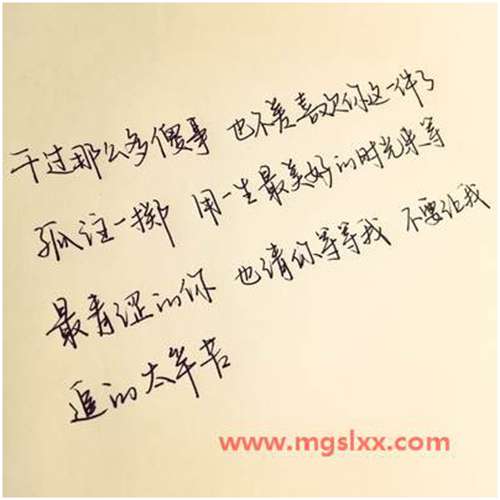 干过那么多傻事 也不差喜欢你这一件了
孤注一掷 用一生最美好的时光来等
最青涩的你 也请你等等我 不要让我
追的太辛苦
www.mgslxx.com